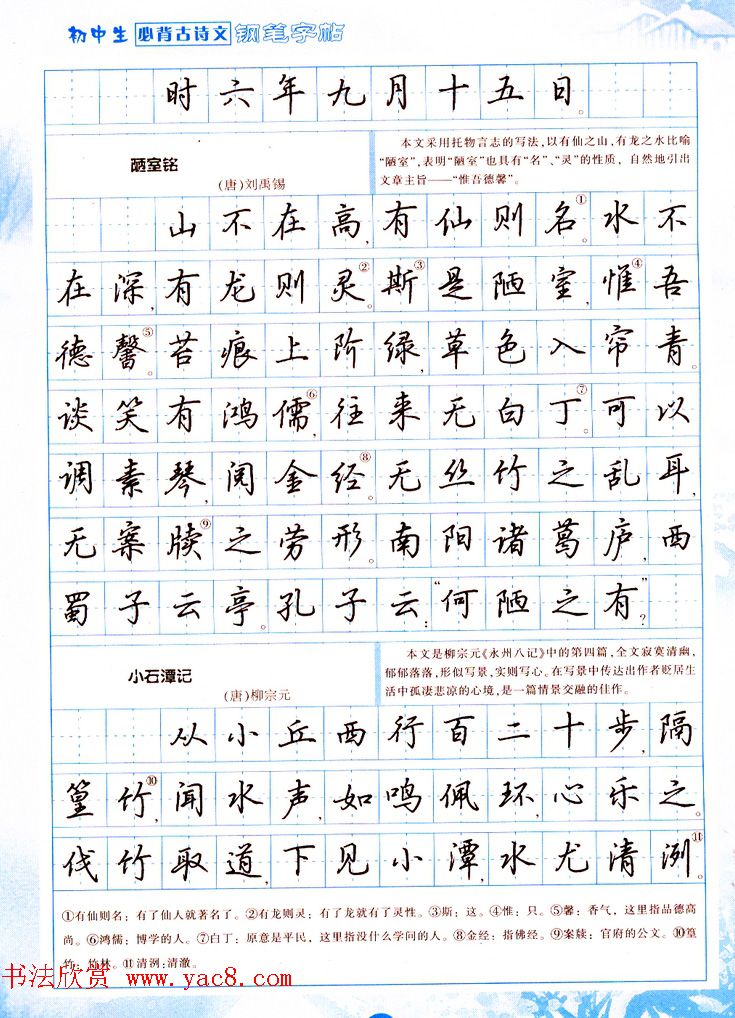 初中生 必背古诗文 钢笔字帖
时六年九月十五日。
陋室铭
(唐)刘禹锡
本文采用托物言志的写法,以有仙之山,有龙之水比喻
“陋室”,表明“陋室”也具有“名”、“灵”的性质,自然地引出
文章主旨——“惟吾德馨”。
山不在高,有仙则名①。水不
在深,有龙则灵②。斯③是陋室,惟④吾
德馨⑤。苔痕上阶绿,草色入帘青。
谈笑有鸿儒⑥,往来无白丁⑦。可以
调素琴,阅金经⑧。无丝竹之乱耳,
无案牍⑨之劳形。南阳诸葛庐,西
蜀子云亭。孔子云:“何陋之有”?
小石潭记
(唐)柳宗元
本文是柳宗元《永州八记》中的第四篇,全文寂寞清幽,
郁郁落落,形似写景,实则写心。在写景中传达出作者贬居生
活中孤凄悲凉的心境,是一篇情景交融的佳作。
从小丘西行百二十步,隔
篁竹⑩,闻水声,如鸣佩环,心乐之。
伐竹取道,下见小潭,水尤清洌⑪
①有仙则名:有了仙人就著名了。②有龙则灵:有了龙就有了灵性。③斯:这。④惟:只。⑤馨:香气,这里指品德高
尚。⑥鸿儒:博学的人。⑦白丁:原意是平民,这里指没什么学问的人。⑧金经:指佛经。⑨案牍:官府的公文。⑩篁
竹:竹林。⑪清洌:清澈。
书法欣赏 www.yac8.com